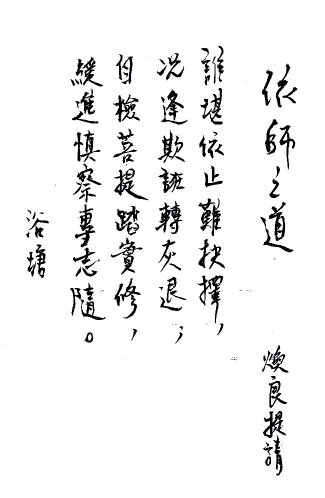 依師之道
煥良提請
誰堪依止難抉擇，
況逢欺誑轉灰退；
自檢菩提踏實修，
緩進慎察專志隨。
浴塘